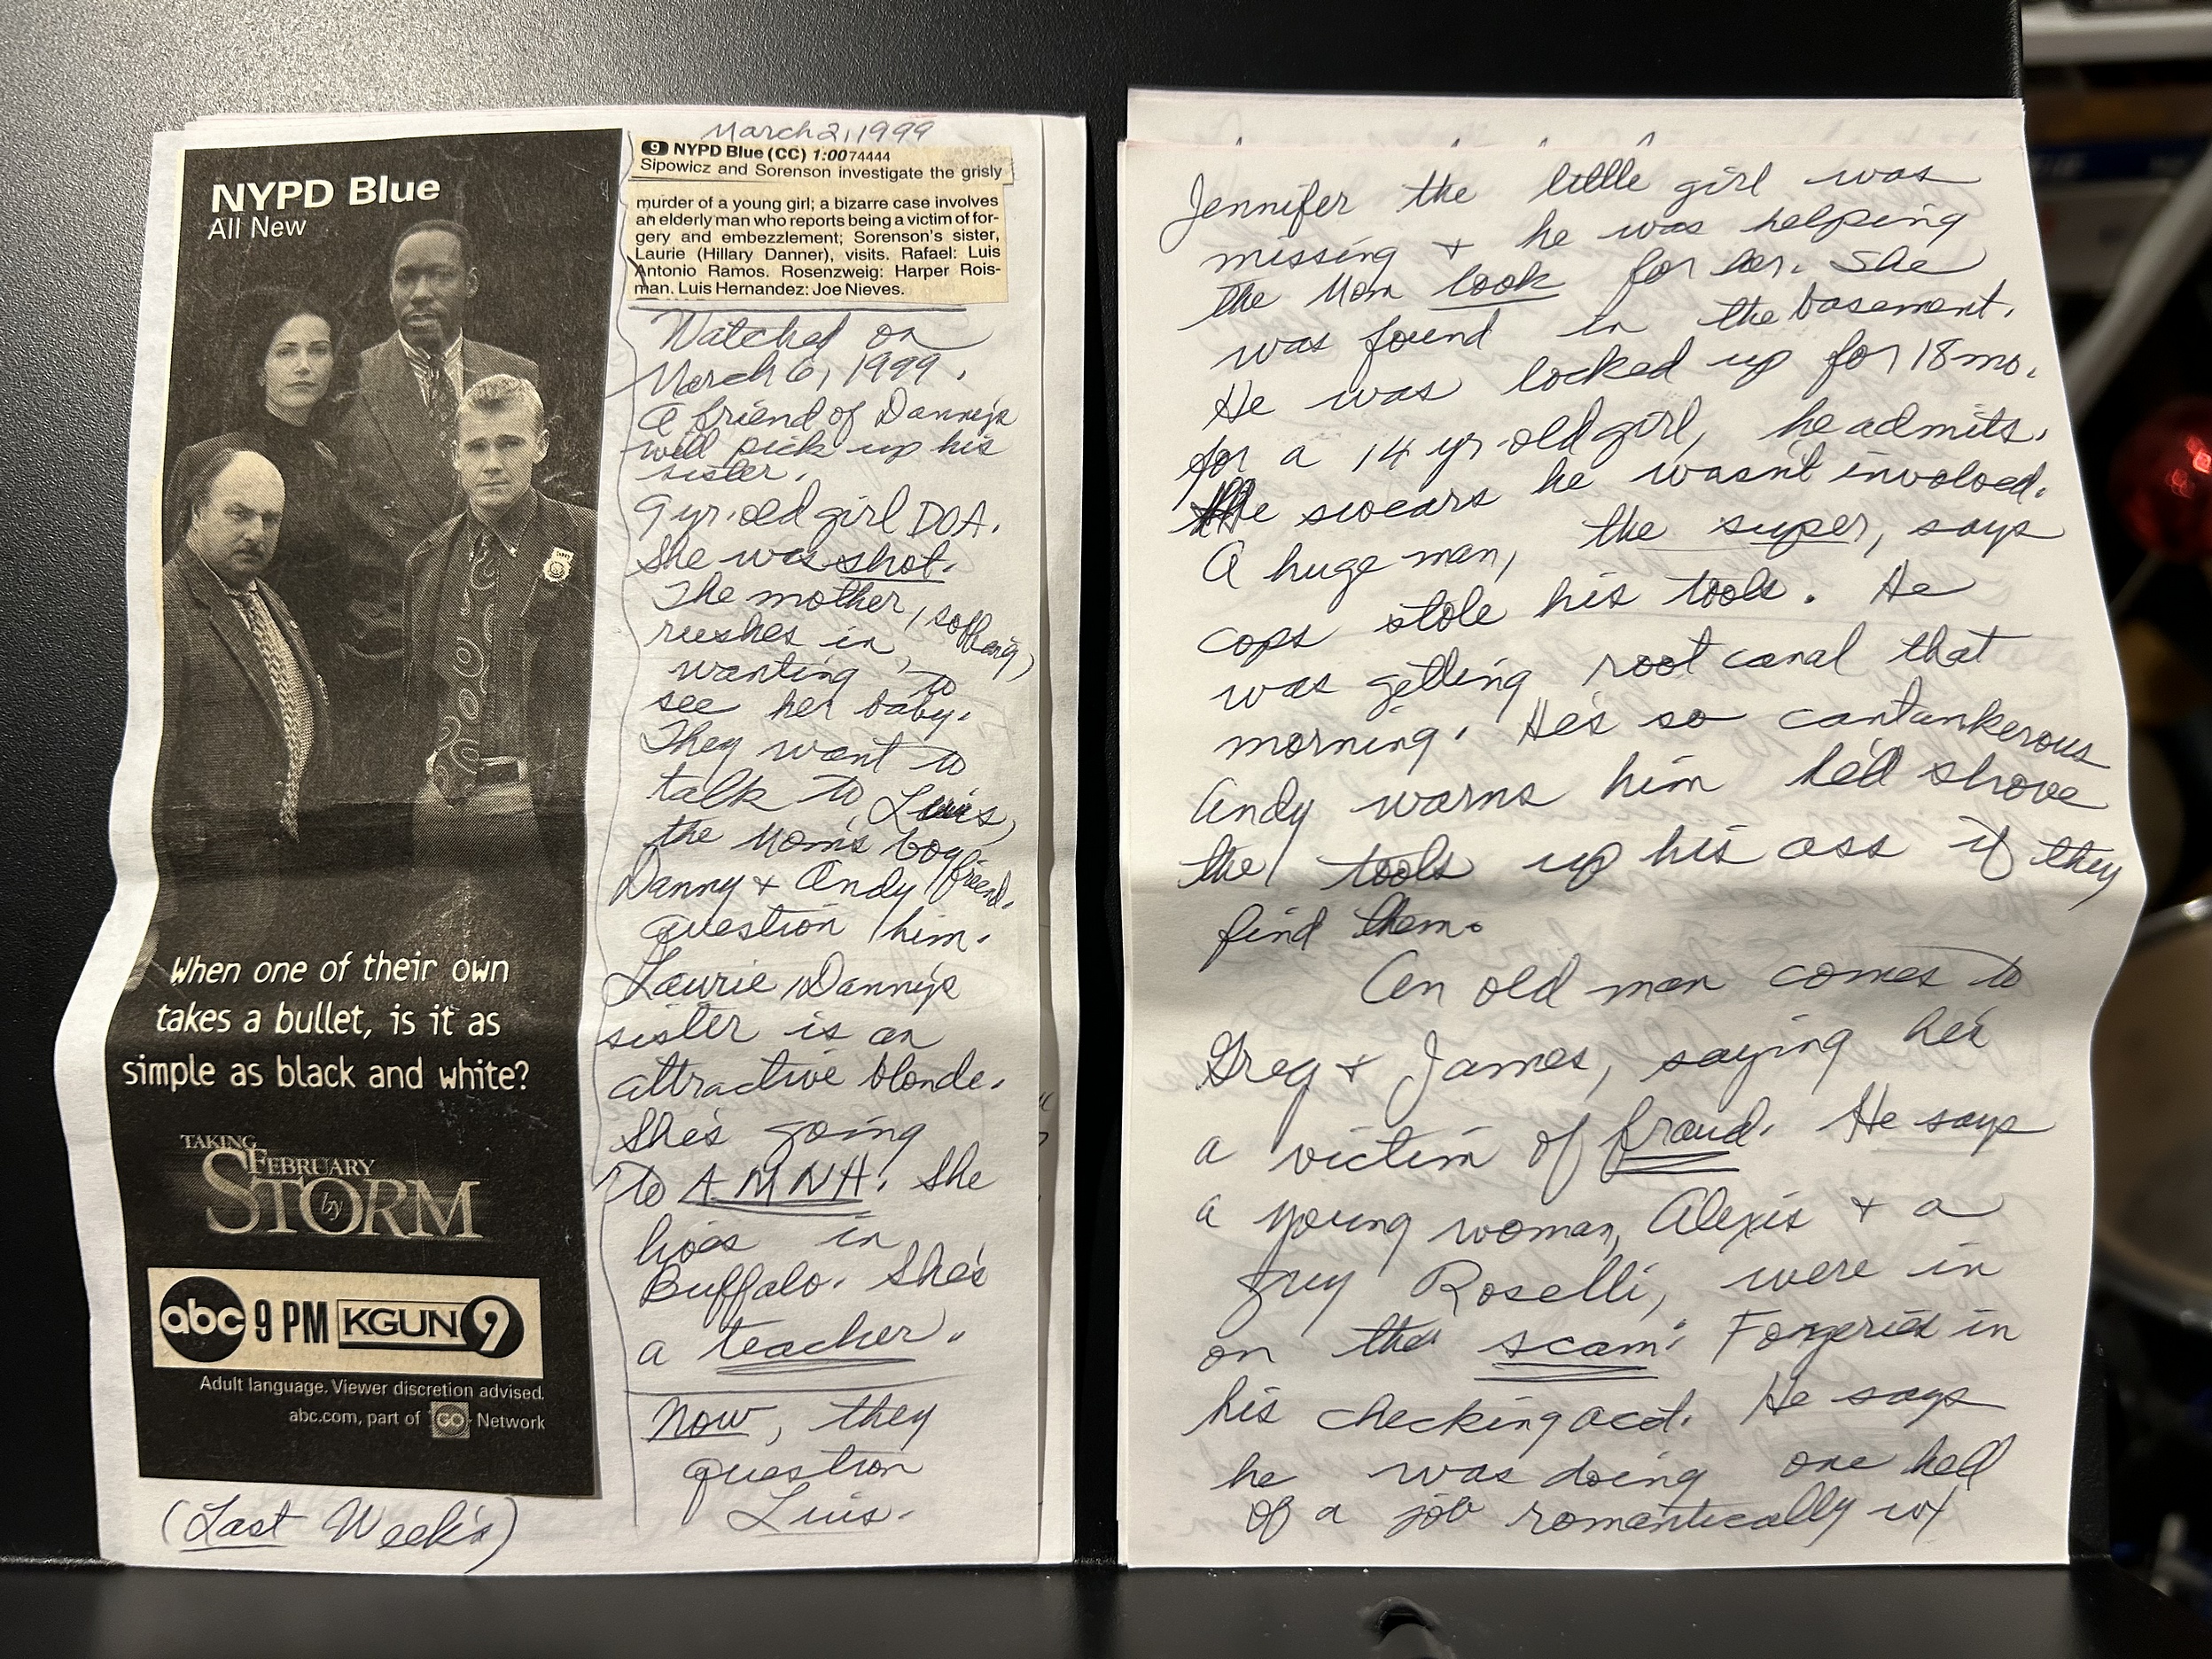 NYPD Blue
All New
When one of their own
takes a bullet, is it as
simple as black and white?
TAKING
FEBRUARY
by
STORM
abc 9 PM KGUN 9
Adult language. Viewer discretion advised.
abc.com, part of GO Network
(Last Week's)
March 2, 1999
9 NYPD Blue (CC) 1:00 74444
Sipowicz and Sorenson investigate the grisly
murder of a young girl; a bizarre case involves
an elderly man who reports being a victim of for-
gery and embezzlement; Sorenson's sister,
Laurie (Hillary Danner), visits. Rafael: Luis
Antonio Ramos. Rosenzweig: Harper Rois-
man. Luis Hernandez: Joe Nieves.
Watched on
March 6, 1999.
A friend of Danny's
will pick up his
sister.
9 yr. old girl DOA.
She was shot.
The mother, sobbing,
rushes in,
wanting to
see her baby.
They want to
talk to Luis,
the Mom's boyfriend.
Danny & Andy
question him.
Laurie, Danny's
sister is an
attractive blonde.
She's going
to AMNH. She
lives in
Buffalo. She's
a teacher.
Now, they
question
Luis.
Jennifer the little girl was
missing & he was helping
the Mom look for her. She
was found in the basement.
He was locked up for 18 mo.
for a 14 yr. old girl, he admits.
He swears he wasn't involved.
A huge man, the super, says
cops stole his tools. He
was getting root canal that
morning. He's so cantankerous
Andy warns him he'd shove
the tools up his ass if they
find them.
An old man comes to
Greg & James, saying he's
a victim of fraud. He says
a young woman, Alexis & a
guy Roselli, were in
on the scam. Forgeries in
his checking acct. He says
he was doing one hell
of a job romantically w/